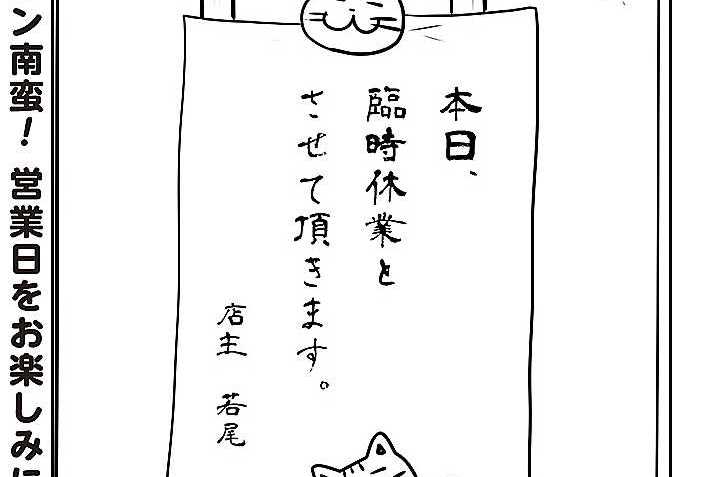 本日、
臨時休業と
させて頂きます。
店主 若尾
ン南蛮！ 営業日をお楽しみに